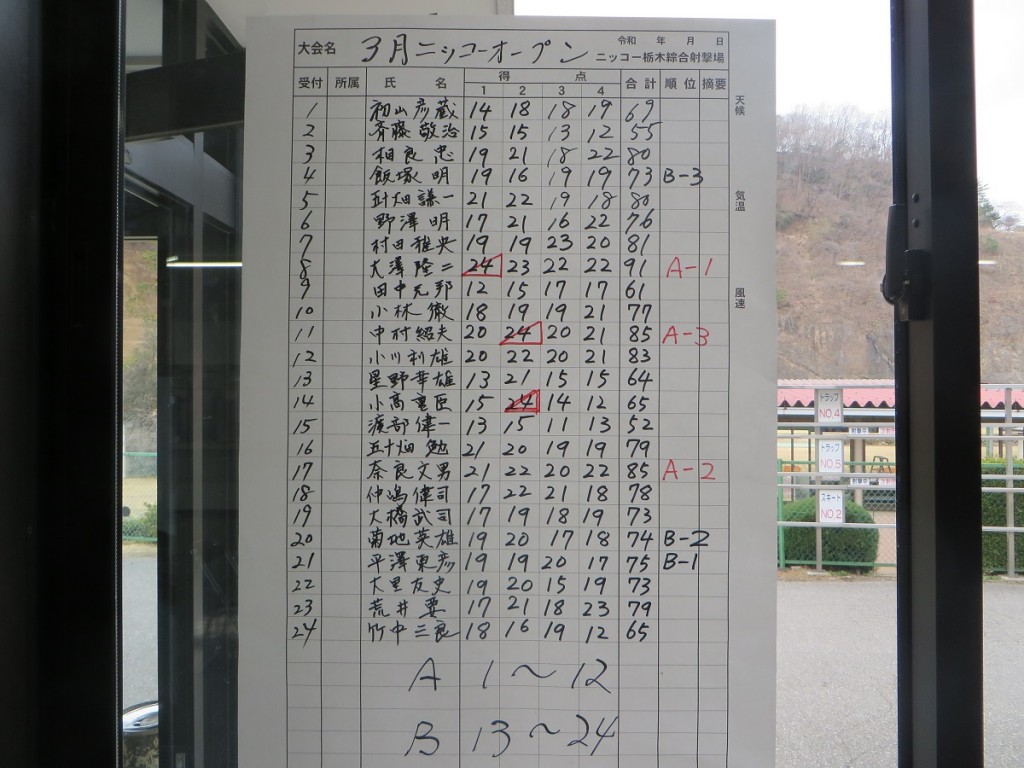 大会名 3月ニッコーオープン 令和 年 月 日
ニッコー栃木綜合射撃場
受付 所属 氏 名 得 点 合計 順位 摘要
1 2 3 4
1 初山彦蔵 14 18 18 19 69
2 斉藤敬治 15 15 13 12 55
3 相良忠 19 21 18 22 80
4 飯塚明 19 16 19 19 73 B-3
5 五十畑謙一 21 22 19 18 80
6 野澤明 17 21 16 22 76
7 村田雅央 19 19 23 20 81
8 大澤隆二 24 23 22 22 91 A-1
9 田中元邦 12 15 17 17 61
10 小林徹 18 19 19 21 77
11 中村紹夫 20 24 20 21 85 A-3
12 小川利雄 20 22 20 21 83
13 星野幸雄 13 21 15 15 64
14 小高重臣 15 24 14 12 65
15 渡部偉一 13 15 11 13 52
16 五十畑勉 21 20 19 19 79
17 奈良文男 21 22 20 22 85 A-2
18 仲嶋偉司 17 22 21 18 78
19 大橋武司 17 19 18 19 73
20 菊地英雄 19 20 17 18 74 B-2
21 平澤東彦 19 19 20 17 75 B-1
22 大里友史 19 20 15 19 73
23 荒井要 17 21 18 23 79
24 竹中三良 18 16 19 12 65
A 1〜12
B 13〜24
天候
気温
風速
トラップ
NO.4
トラップ
NO.5
スキート
NO.2